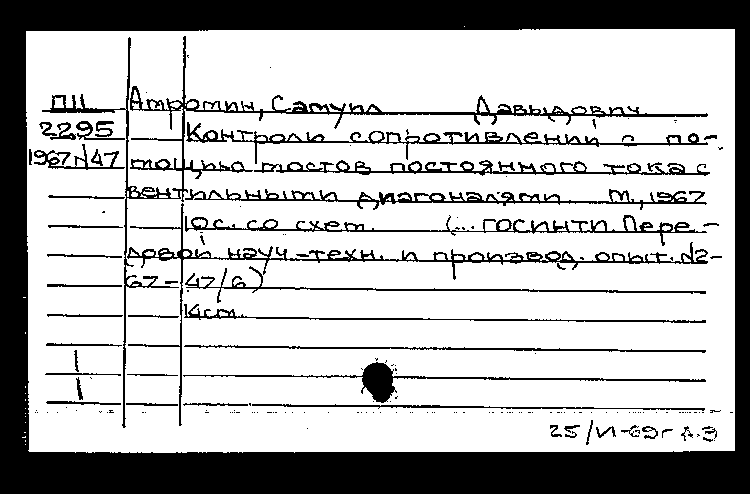 ПII Атромин, Самуил Давыдович.
2295 Контроль сопротивлений с по-
1967 №47 мощью мостов постоянного тока с
вентильными диагоналями. М., 1967
10с. со схем. (... ГОСИНТИ. Пере-
довой науч.-техн. и производ. опыт. №2-
67-47/6)
14см.
25/VI-69г А.Э